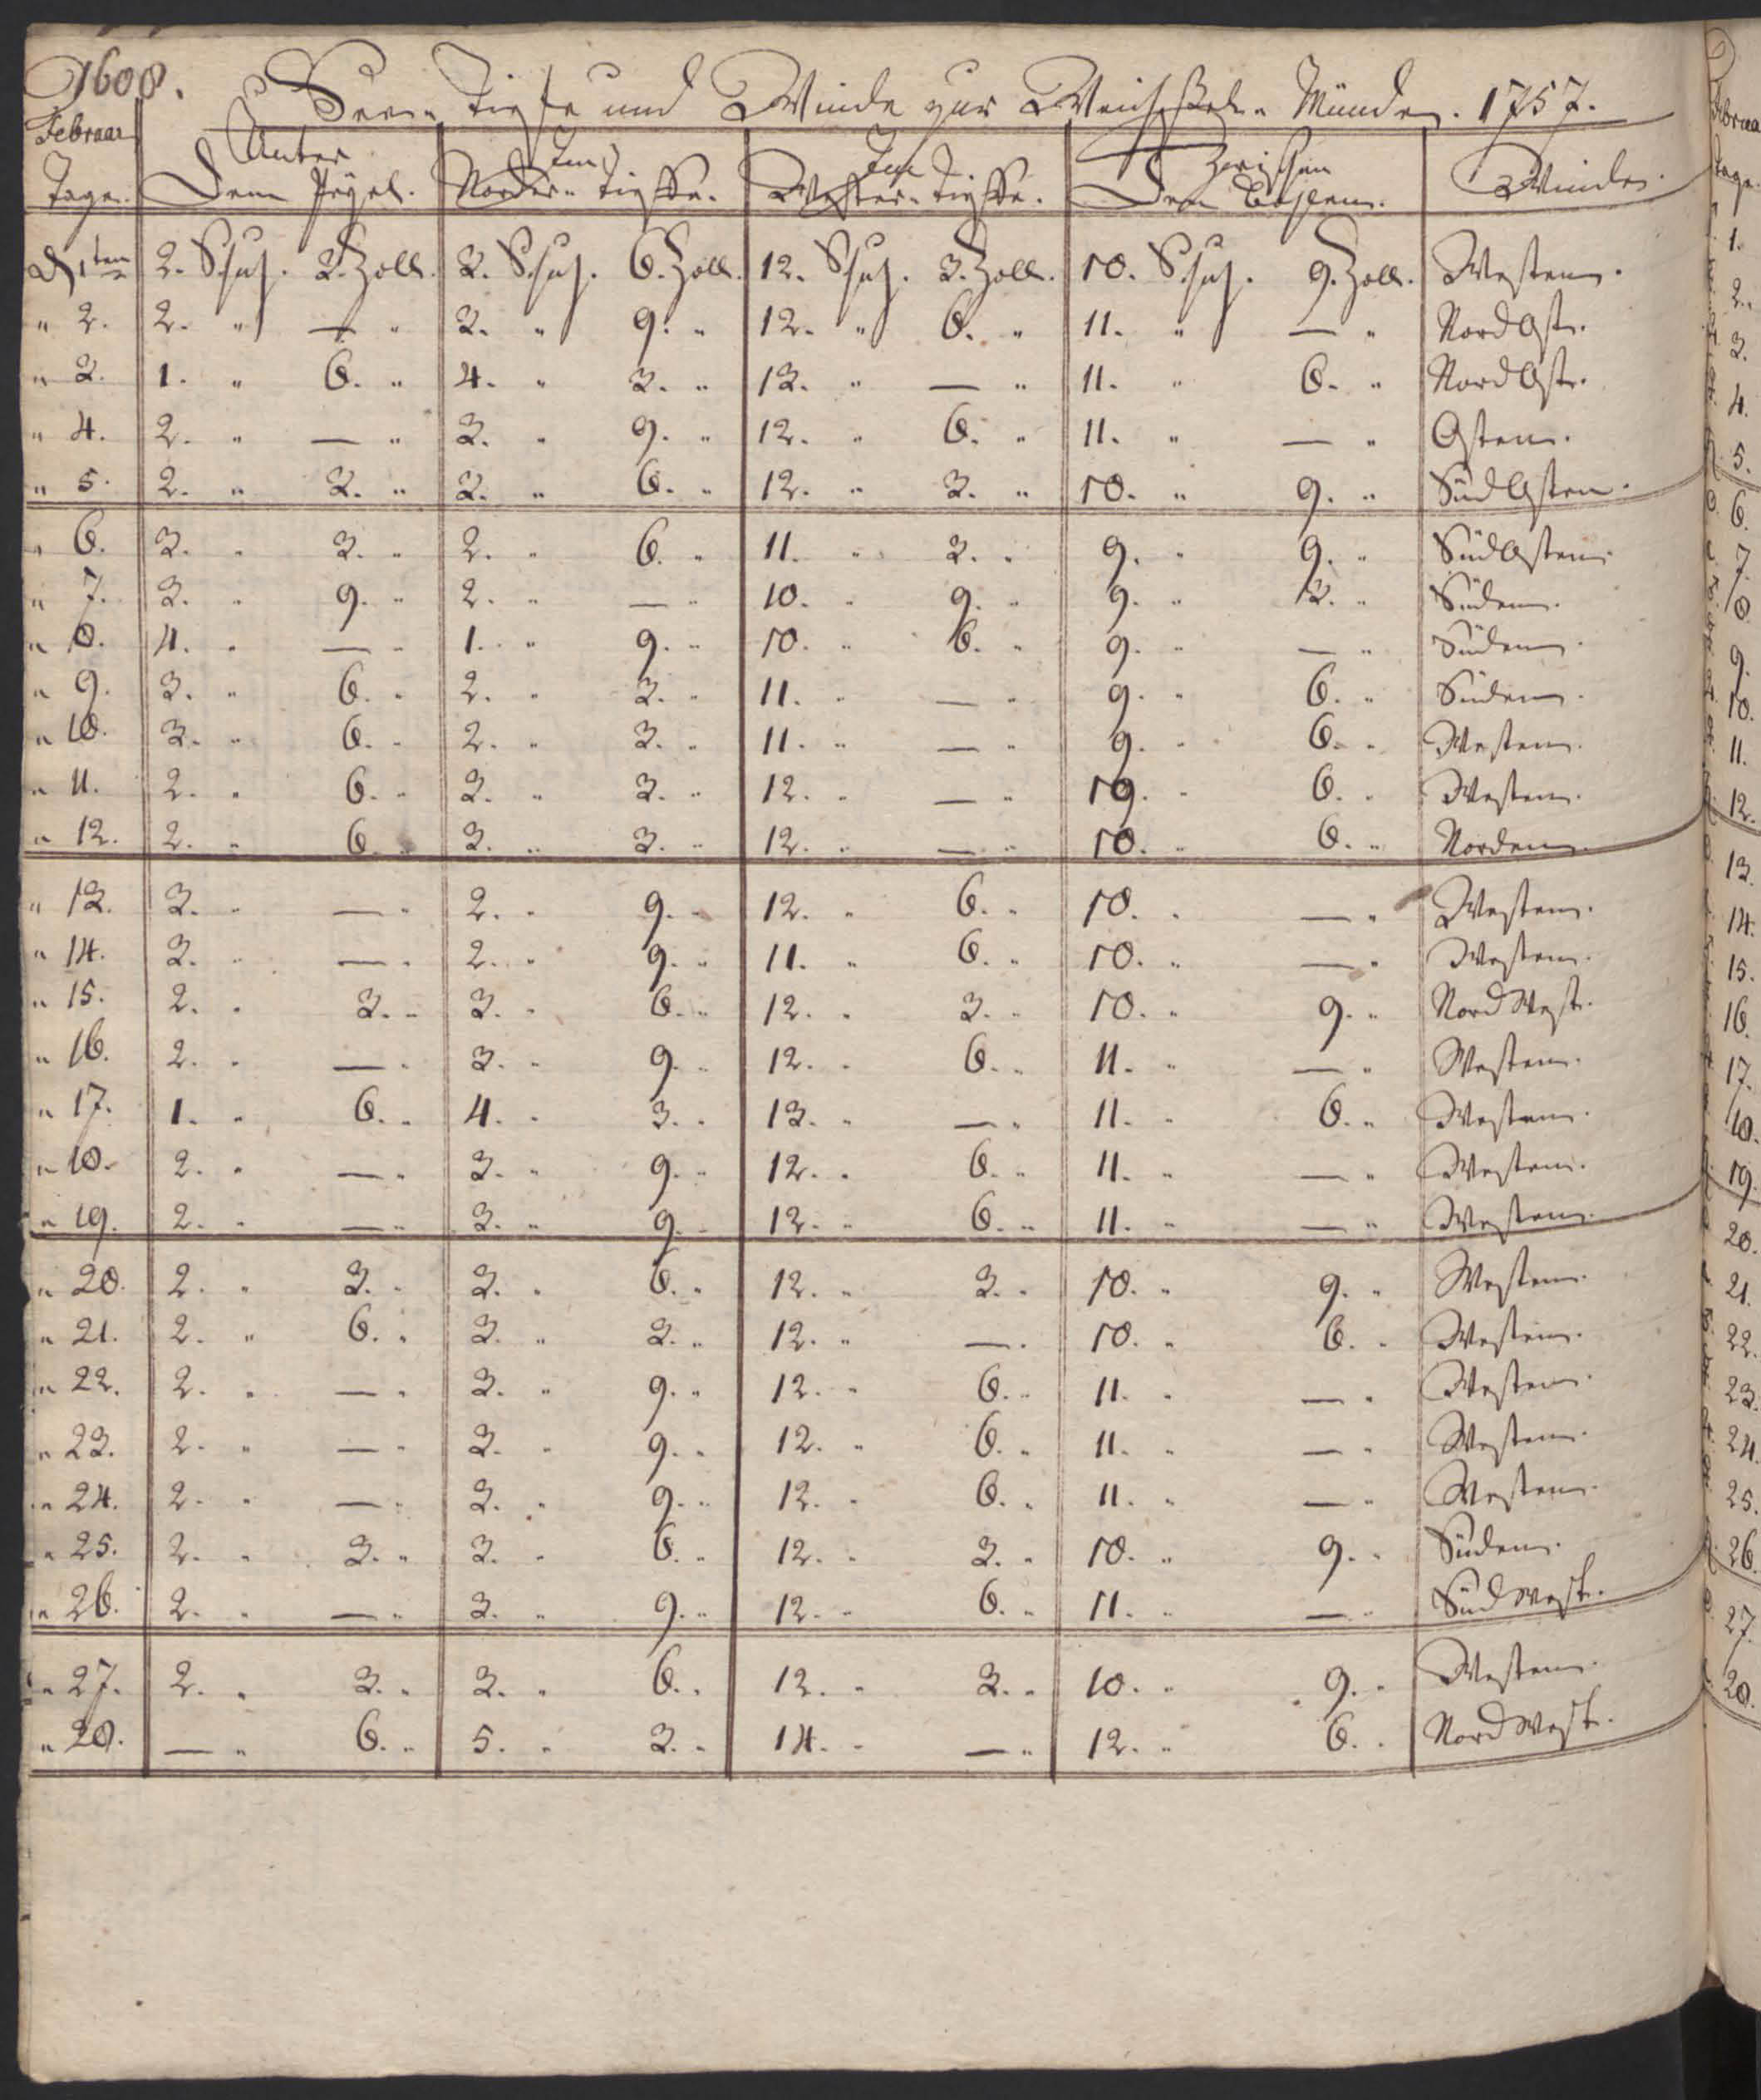 1608. Seen Tiefe und Winde zur Weichsel-Münden. 1757.
Februar Unter Im Im Zwischen
Tage. Dem Pegel. Norder-Tieffe. Wester-Tieffe. Dem Winde.
D 1ten 2. Schuh. 3. Zoll. 3. Schuh. 6. Zoll. 12. Schuh. 3. Zoll. 10. Schuh. 9. Zoll. Westen.
" 2. 2. " — " 3. " 9. " 12. " 6. " 11. " — " NordOst.
" 3. 1. " 6. " 4. " 3. " 13. " — " 11. " 6. " NordOst.
" 4. 2. " — " 3. " 9. " 12. " 6. " 11. " — " Osten.
" 5. 2. " 3. " 3. " 6. " 12. " 3. " 10. " 9. " SüdOsten.
" 6. 3. " 3. " 2. " 6. " 11. " 3. " 9. " 9. " SüdOsten.
" 7. 3. " 9. " 2. " — " 10. " 9. " 9. " 3. " Süden.
" 8. 4. " — " 1. " 9. " 10. " 6. " 9. " — " Süden.
" 9. 3. " 6. " 2. " 3. " 11. " — " 9. " 6. " Süden.
" 10. 3. " 6. " 2. " 3. " 11. " — " 9. " 6. " Westen.
" 11. 2. " 6. " 3. " 3. " 12. " — " 10. " 6. " Westen.
" 12. 2. " 6. " 3. " 3. " 12. " — " 10. " 6. " Norden.
" 13. 3. " — " 2. " 9. " 12. " 6. " 10. " — " Westen.
" 14. 3. " — " 2. " 9. " 11. " 6. " 10. " — " Westen.
" 15. 2. " 3. " 3. " 6. " 12. " 3. " 10. " 9. " NordWest.
" 16. 2. " — " 3. " 9. " 12. " 6. " 11. " — " Westen.
" 17. 1. " 6. " 4. " 3. " 13. " — " 11. " 6. " Westen.
" 18. 2. " — " 3. " 9. " 12. " 6. " 11. " — " Westen.
" 19. 2. " — " 3. " 9. " 12. " 6. " 11. " — " Westen.
" 20. 2. " 3. " 3. " 6. " 12. " 3. " 10. " 9. " Westen.
" 21. 2. " 6. " 3. " 3. " 12. " — " 10. " 6. " Westen.
" 22. 2. " — " 3. " 9. " 12. " 6. " 11. " — " Westen.
" 23. 2. " — " 3. " 9. " 12. " 6. " 11. " — " Westen.
" 24. 2. " — " 3. " 9. " 12. " 6. " 11. " — " Westen.
" 25. 2. " 3. " 3. " 6. " 12. " 3. " 10. " 9. " Süden.
" 26. 2. " — " 3. " 9. " 12. " 6. " 11. " — " SüdWest.
" 27. 2. " 3. " 3. " 6. " 12. " 3. " 10. " 9. " Westen.
" 28. — " 6. " 5. " 3. " 14. " — " 12. " 6. " NordWest.
Tage
1.
2.
3.
4.
5.
6.
7.
8.
9.
10.
11.
12.
13.
14.
15.
16.
17.
18.
19.
20.
21.
22.
23.
24.
25.
26.
27.
28.